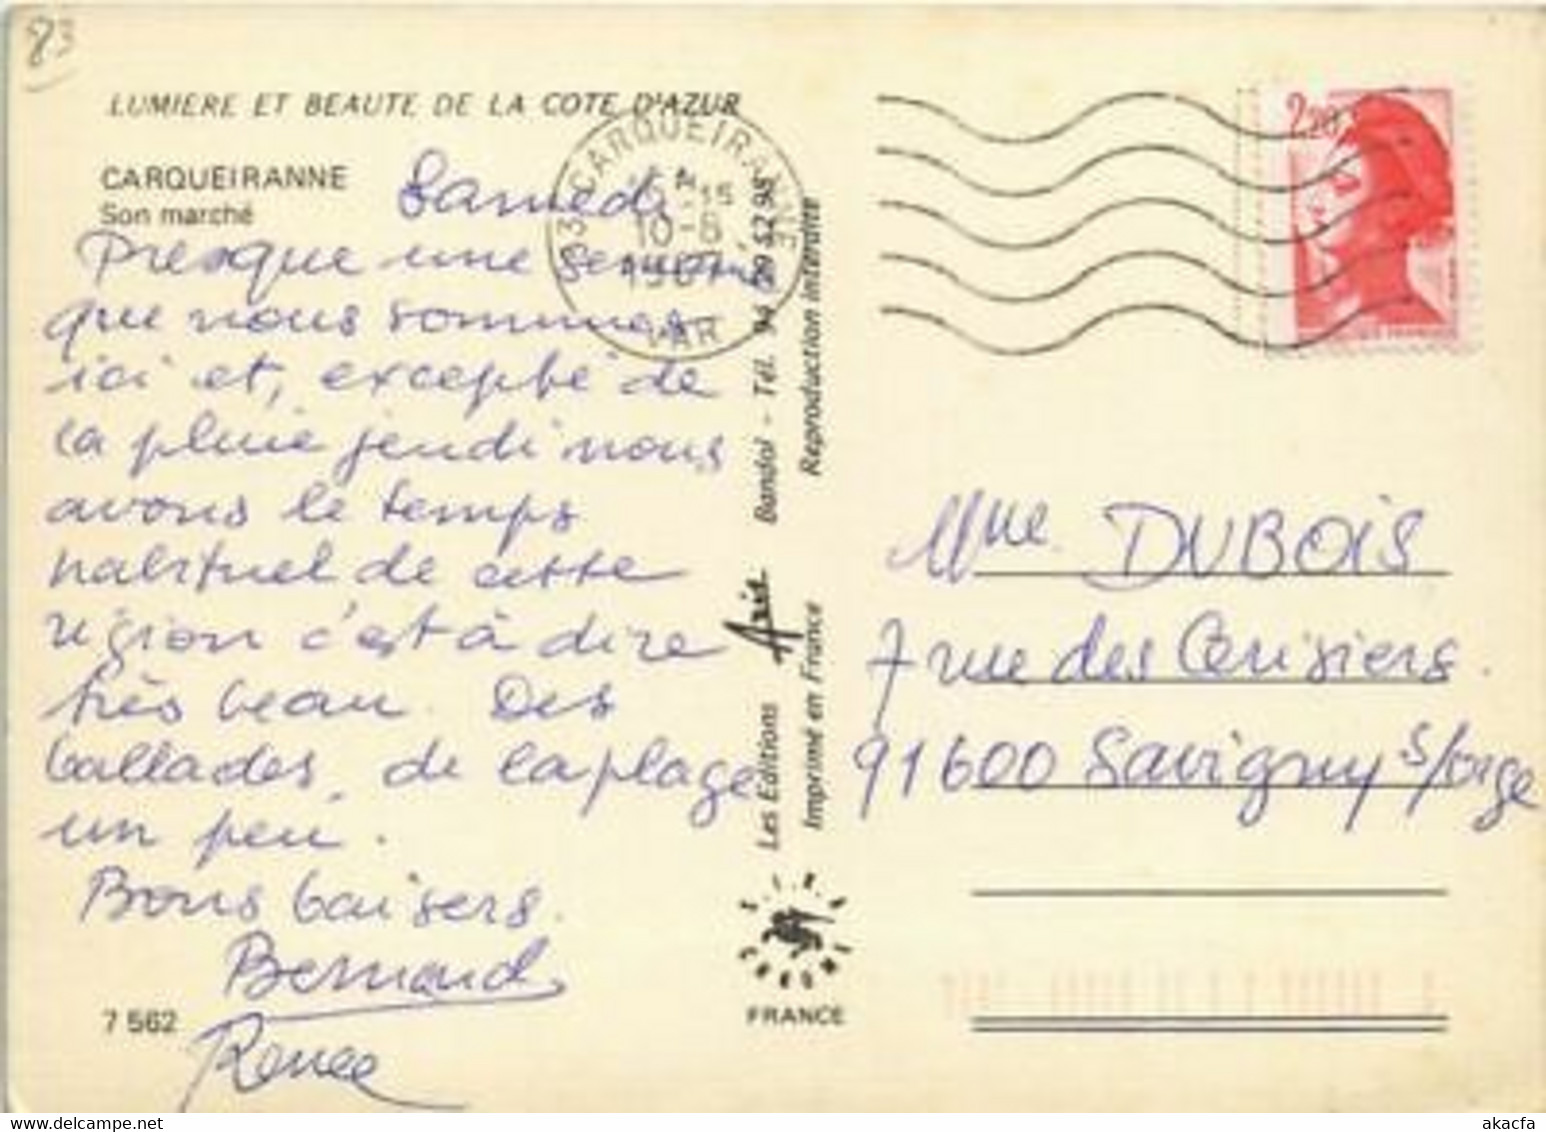 83
LUMIERE ET BEAUTE DE LA COTE D'AZUR
CARQUEIRANNE
Son marché
Samedi
Presque une semaine
que nous sommes
ici et, excepté de
la pluie jeudi nous
avons le temps
habituel de cette
région c'est à dire
très beau. Des
ballades, de la plage
un peu.
Bons baisers.
Bernard
Renée
7 562
83 CARQUEIRANNE
10-8
1987
VAR
Les Editions Aris Bandol - Tél. 94 29 52 98
Imprimé en France Reproduction interdite
FRANCE
2,20
Mme DUBOIS
7 rue des Cerisiers.
91600 Savigny s/orge
akacfa